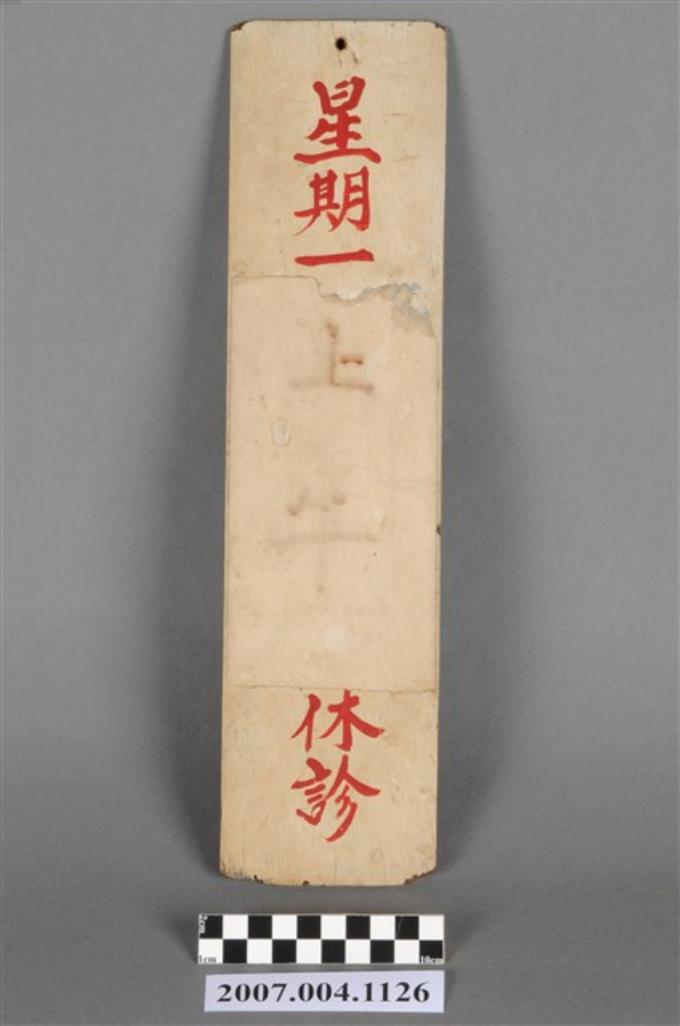 星期一
上午
休診
2cm
1cm
10cm
2007.004.1126